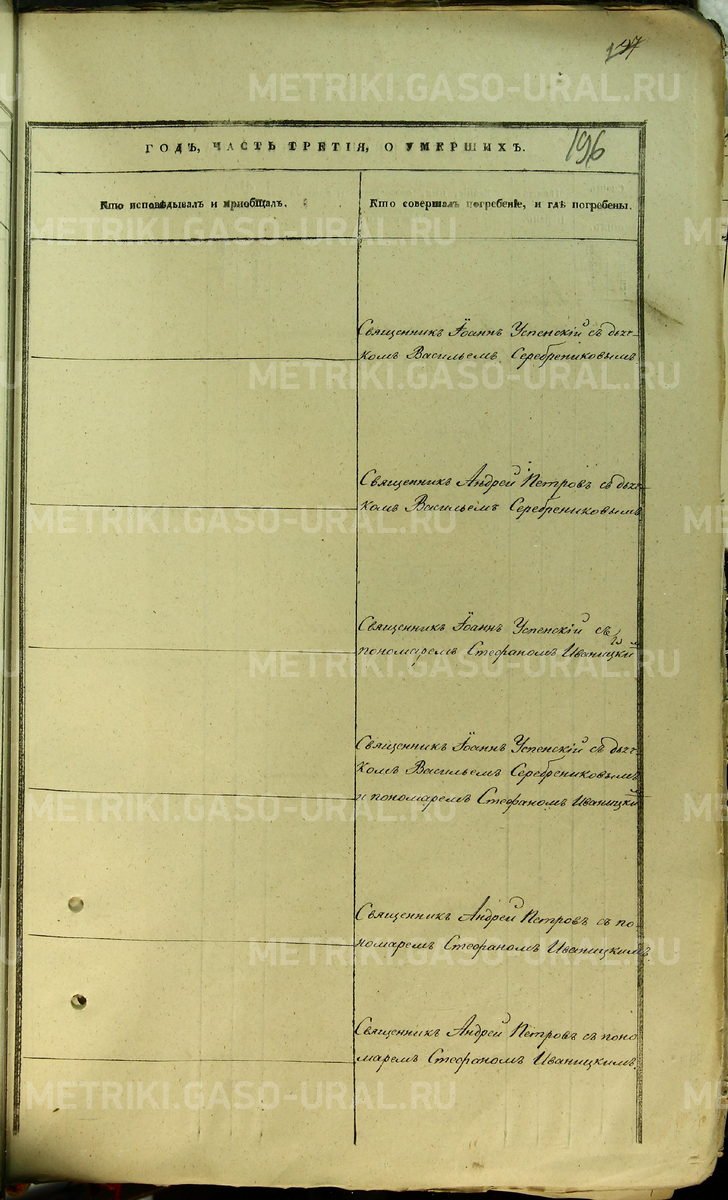 197
196
ГОДЪ, ЧАСТЬ ТРЕТІЯ, О УМЕРШИХЪ.
Кто исповѣдывалъ и пріобщалъ.
Кто совершалъ погребеніе, и гдѣ погребены.
Священникъ Іоаннъ Успенскій съ дьяч-
комъ Васильемъ Серебрениковымъ
Священникъ Андрей Петровъ съ дьяч-
комъ Васильемъ Серебрениковымъ
Священникъ Іоаннъ Успенскій съ
пономаремъ Стефаномъ Иваницкимъ
Священникъ Іоаннъ Успенскій съ дьяч-
комъ Васильемъ Серебрениковымъ
и пономаремъ Стефаномъ Иваницкимъ
Священникъ Андрей Петровъ съ по-
номаремъ Стефаномъ Иваницкимъ.
Священникъ Андрей Петровъ съ поно
маремъ Стефаномъ Иваницкимъ.
METRIKI.GASO-URAL.RU